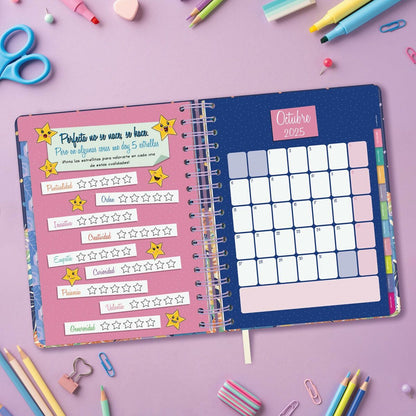 Perfecto no se nace, se hace.
Pero en algunas cosas me doy 5 estrellas
¡Pinta las estrellitas para valorarte en cada una
de estas cualidades!
Puntualidad
Orden
Iniciativa
Creatividad
Empatía
Curiosidad
Paciencia
Valentía
Generosidad
Octubre
2025